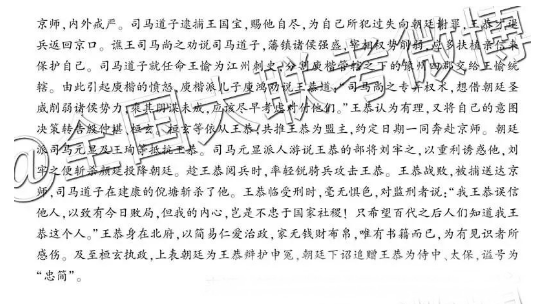 京师，内外戒严。司马道子逮捕王国宝，赐他自尽，为自己所犯过失向朝廷谢罪，王恭才退
兵返回京口。谯王司马尚之劝说司马道子，藩镇诸侯强盛，宰相权势削弱，应多扶植亲信来
保护自己。司马道子就任命王愉为江州刺史，分割庾楷管辖之下的豫州四郡交给王愉统
辖。由此引起庾楷的愤怒，庾楷派儿子庾鸿劝说王恭道：“司马尚之专弄权术，想借朝廷圣
威削弱诸侯势力，乘其阴谋未成，应该尽早考虑对付他们。”王恭认为有理，又将自己的意图
决策转告殷仲堪、桓玄，桓玄等依从王恭，共推王恭为盟主，约定日期一同奔赴京师。朝廷
派司马元显及王珣等抵抗王恭。司马元显派人游说王恭的部将刘牢之，以重利诱惑他，刘
牢之便斩颜延投降朝廷。趁王恭阅兵时，率轻锐骑兵攻击王恭。王恭战败，被捕送达京
师，司马道子在建康的倪塘斩杀了他。王恭临受刑时，毫无惧色，对监刑者说：“我王恭误信
他人，以致有今日败局，但我的内心，岂是不忠于国家社稷！只希望百代之后人们知道我王
恭这个人。”王恭身在北府，以简易仁爱治政，家无钱财布帛，唯有书籍而已，为有见识者所
感伤。及至桓玄执政，上表朝廷为王恭辩护申冤，朝廷下诏追赠王恭为侍中、太保，谥号为
“忠简”。
@全国大联考微博